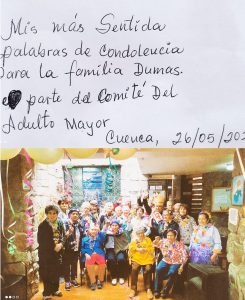 Mis más Sentida
palabras de condolencia
para la familia Dumas.
parte del Comité Del
Adulto Mayor
Cuenca, 26/05/202